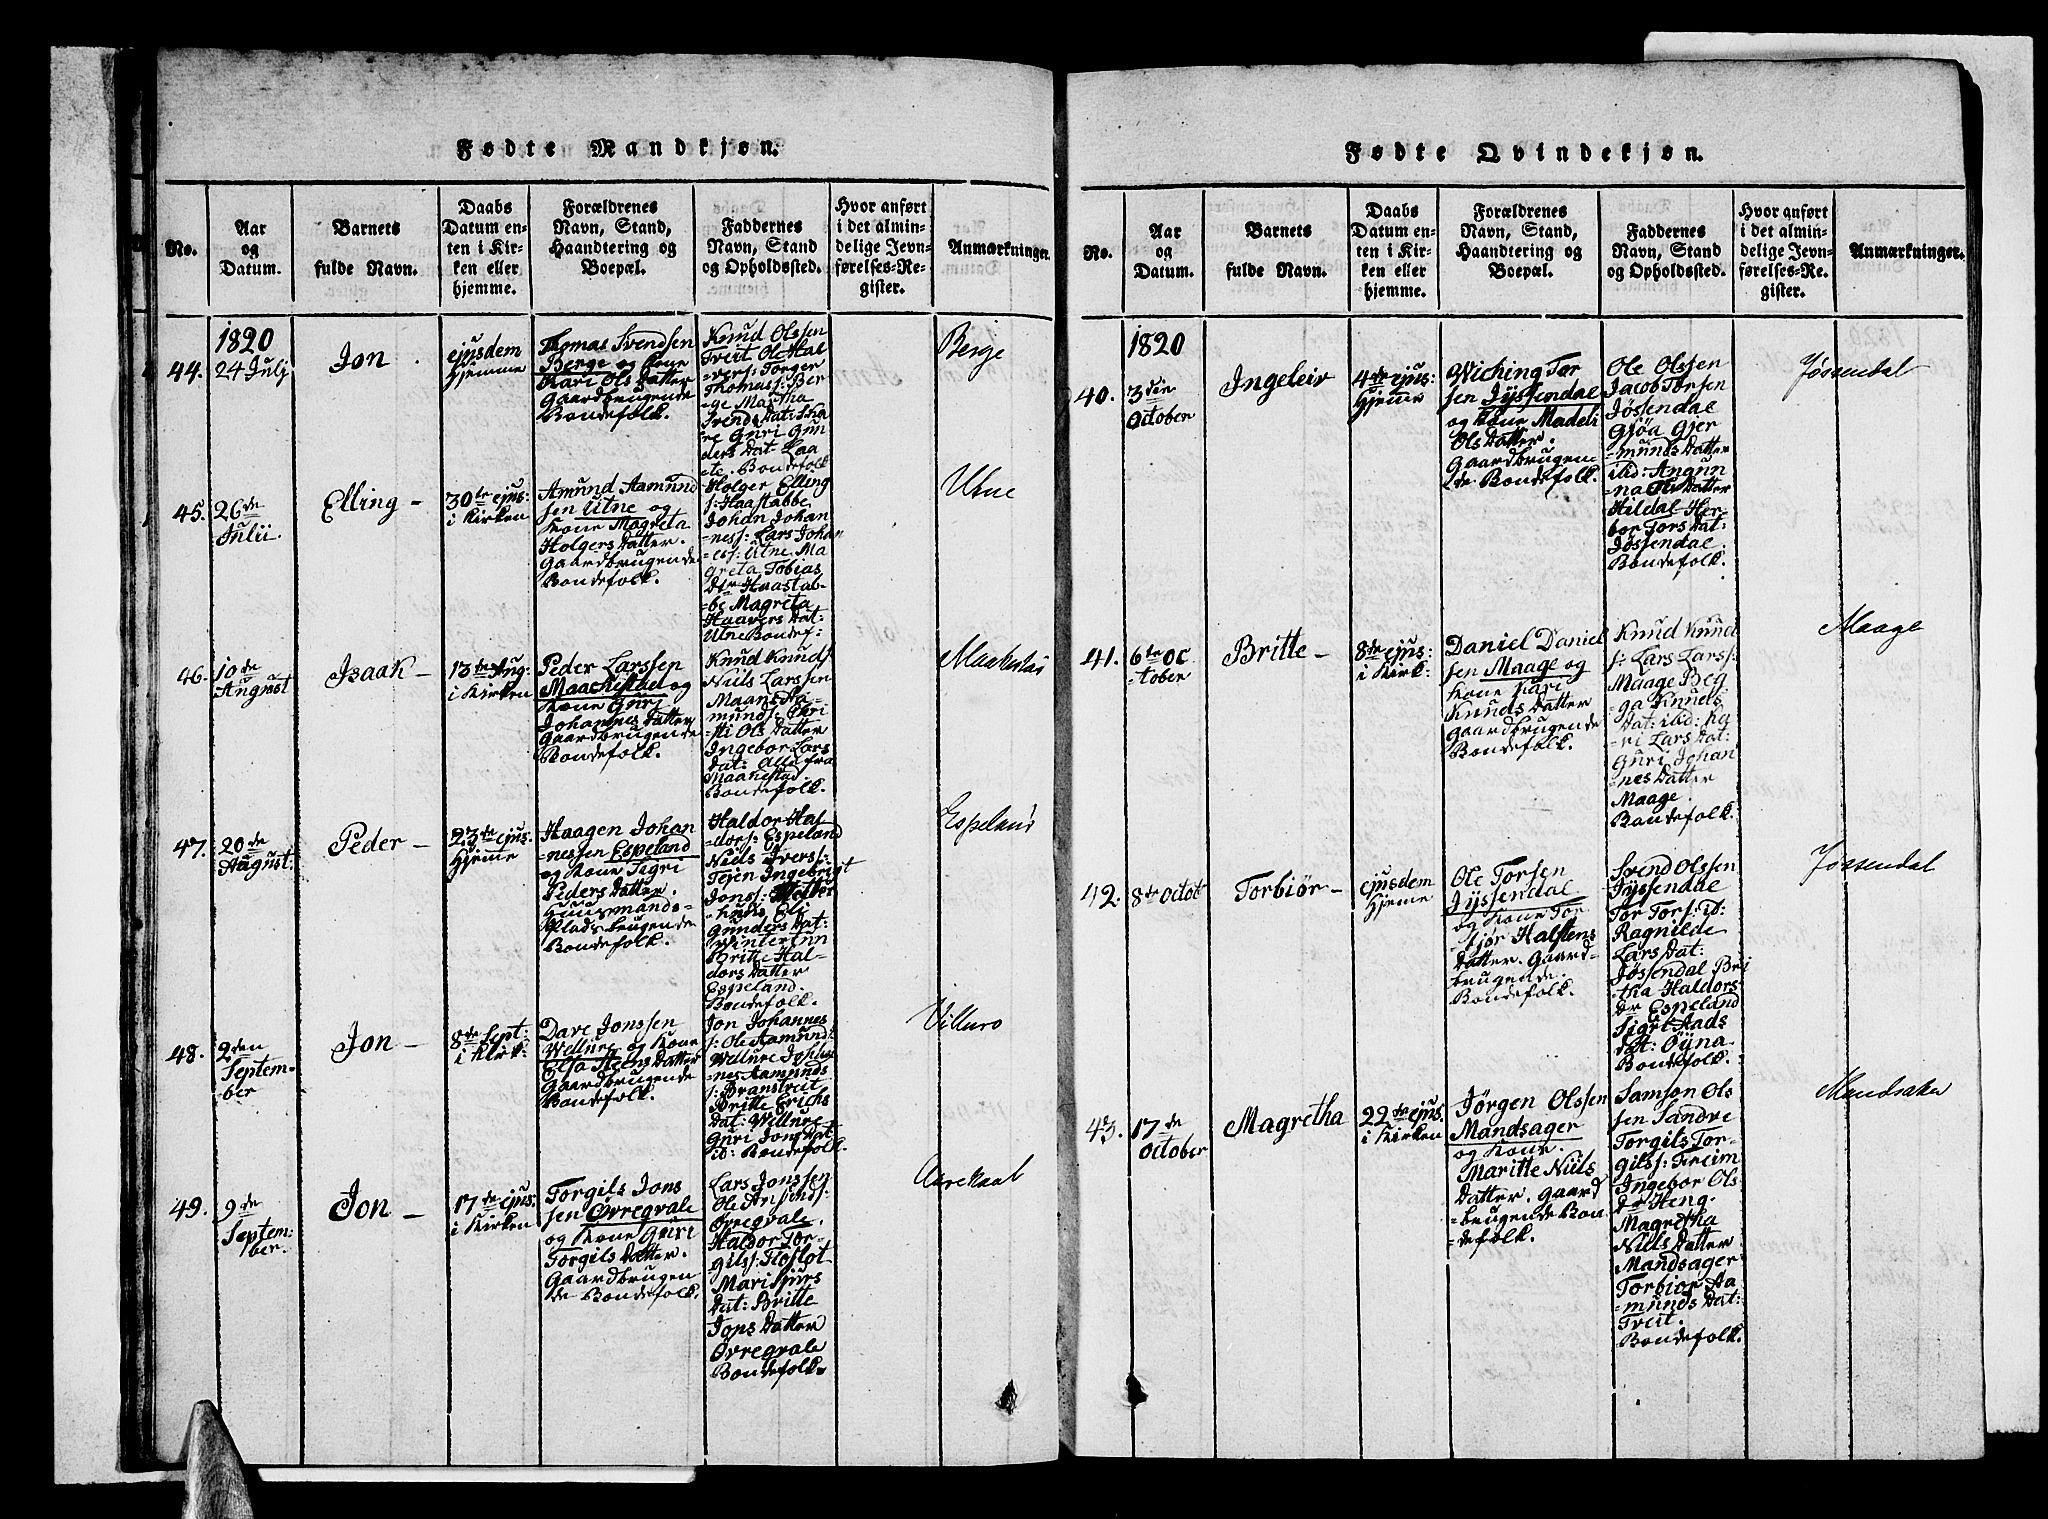 Fødte Mandkjøn.
No.
Aar
og
Datum.
Barnets
fulde Navn.
Daabs
Datum en-
ten i Kir-
ken eller
hjemme.
Forældrenes
Navn, Stand,
Haandtering og
Boepæl.
Faddernes
Navn, Stand
og Opholdssted.
Hvor anført
i det almin-
delige Jevn-
førelses-Re-
gister.
Anmærkninger.
44.
1820
24 Julj
Jon
ejusdem
Hjemme
Thomas Svendsen
Berge og Kone
Kari Ols Datter
Gaardbrugende
Bondefolk.
Knud Olssen
Treit Ole Hal
=vers: Torger
Thomass: Ber
=ge Martha
Svends Dat: Ska
re Guri Gun
ders Dat Laa
te. Bondefolk
Berge
45.
26 de
Julii.
Elling -
30te ejus:
i Kirken
Amund Aamund
sen Utne og
Kone Magreta
Holgers Datter.
Gaardbrugende
Bondefolk.
Holger Elling
s: Haastabbe
Johan Johan
=ness: Lars Johan
=ess: Utne Ma
greta Tobias
Dtr Haastab-
=be Magreta
Haavers Dat:
Utne Bondef:
Utne
46.
10 de
August
Isaak -
13te Aug:
i Kirken
Peder Larssen
Maachestad og
Kone Gurj
Johannes Datter
Gaardbrugende
Bondefolk.
Knud Knuds:
Niels Larssen
Maans Aa-
munds: Chri
=sti Ols Datter
Ingebor Lars
Dat: Alle fra
Maakestad.
Bondefolk.
47.
20 de
August.
Peder -
23de ejus:
Hjeme
Haagen Johan
=nessen Espeland
og Kone Sigri
Peders Datter.
Huusmands-
Pladsbrugende
Bondefolk.
Haldor Hal
dors: Espeland
Niels Ivers:
Tejen Ingebrigt
Jons:
Eli
Gunders Dat:
Winterinn
Britte Hal-
dors Datter
Espeland.
Bondefolk.
Espeland
48.
2den
Septem=
ber
Jon -
8de Sept:
i Kirk:
Dave Jonssen
Wellure og Kone
Elsa Steens Datter
Gaardbrugende
Bondefolk.
Jon Johannes
s: Ole Aamund:
Wellure Johan
nes Aamunds
s: Branstveit
Britte Erichs
Dat: Wellure
Guri Jons Dat
ib: Bondefolk.
Villuro
49.
9de
Septem=
ber.
Jon -
17de ejus:
i Kirken
Torgils Jons
sen Øvregvale
og Kone Guri
Torgils Datter.
Gaardbrugen
de Bondefolk.
Lars Jonssen
Ole Ansends:
Øvregvale.
Haldor Tor-
gils: Floflot
Mari Sjurs
Dat: Britte
Jons Datter
Øvregvale
Bondefolk.
Fødte Qvindekjøn.
No.
Aar
og
Datum.
Barnets
fulde Navn.
Daabs
Datum en-
ten i Kir-
ken eller
hjemme.
Forældrenes
Navn, Stand,
Haandtering og
Boepæl.
Faddernes
Navn, Stand
og Opholdssted.
Hvor anført
i det almin-
delige Jevn-
førelses-Re-
gister.
Anmærkninger.
40.
1820
3die
October
Ingeleiv
4de ejus:
Hjeme
Wiching Tor
sen Jyssendal
og Kone Madeli
Ols Datter.
Gaardbrugen
de Bondefolk.
Ole Olssen
Jacob Torsen
Jøssendal
Gjøa Gjer
=munds Datter
ibd: Angun
=na Ols Datter
Hildal Her-
bor Tors Dat:
Jøssendal.
Bondefolk.
Jøssendal
41.
6te Oc
=tober
Britte -
8de ejus:
i Kirk:
Daniel Daniel
sen Maage og
Kone Kari
Knuds Datter
Gaardbrugende
Bondefolk.
Knud Knud
s: Lars Lars:
Maage Beg
=ga Knuds
Dat: ibd: Ka
=ri Lars Dat:
Guri Johan
=nes Datter
Maage.
Bondefolk.
Maage
42.
8de Octob
Torbiør -
ejusdem
Hjeme
Ole Torsen
Jyssendal
og Kone Tor
=bjør Halstens
Datter. Gaard=
brugende.
Bondefolk.
Svend Olssen
Jyssendal
Tor Tors: ib:
Ragnilde
Lars Dat:
Jøssendal Bri
=tha Haldors
Dr Espeland
Sigri Aads
dat: Øyna
Bondefolk.
Jossendal
43.
17de
October
Magretha
22de ejus.
i Kirken
Jørgen Olssen
Mandsager
og Kone.
Maritte Niils
Datter. Gaard
=brugende Bon
=defolk.
Samson Ols
sen Sandve
Torgils Tor-
gils: Freim
Ingebor Ols
Dr Heng
Magretha
Niels Datter
Mandsager
Torbior Aa
=munds Dat:
Treit.
Bondefolk.
Mandsaker